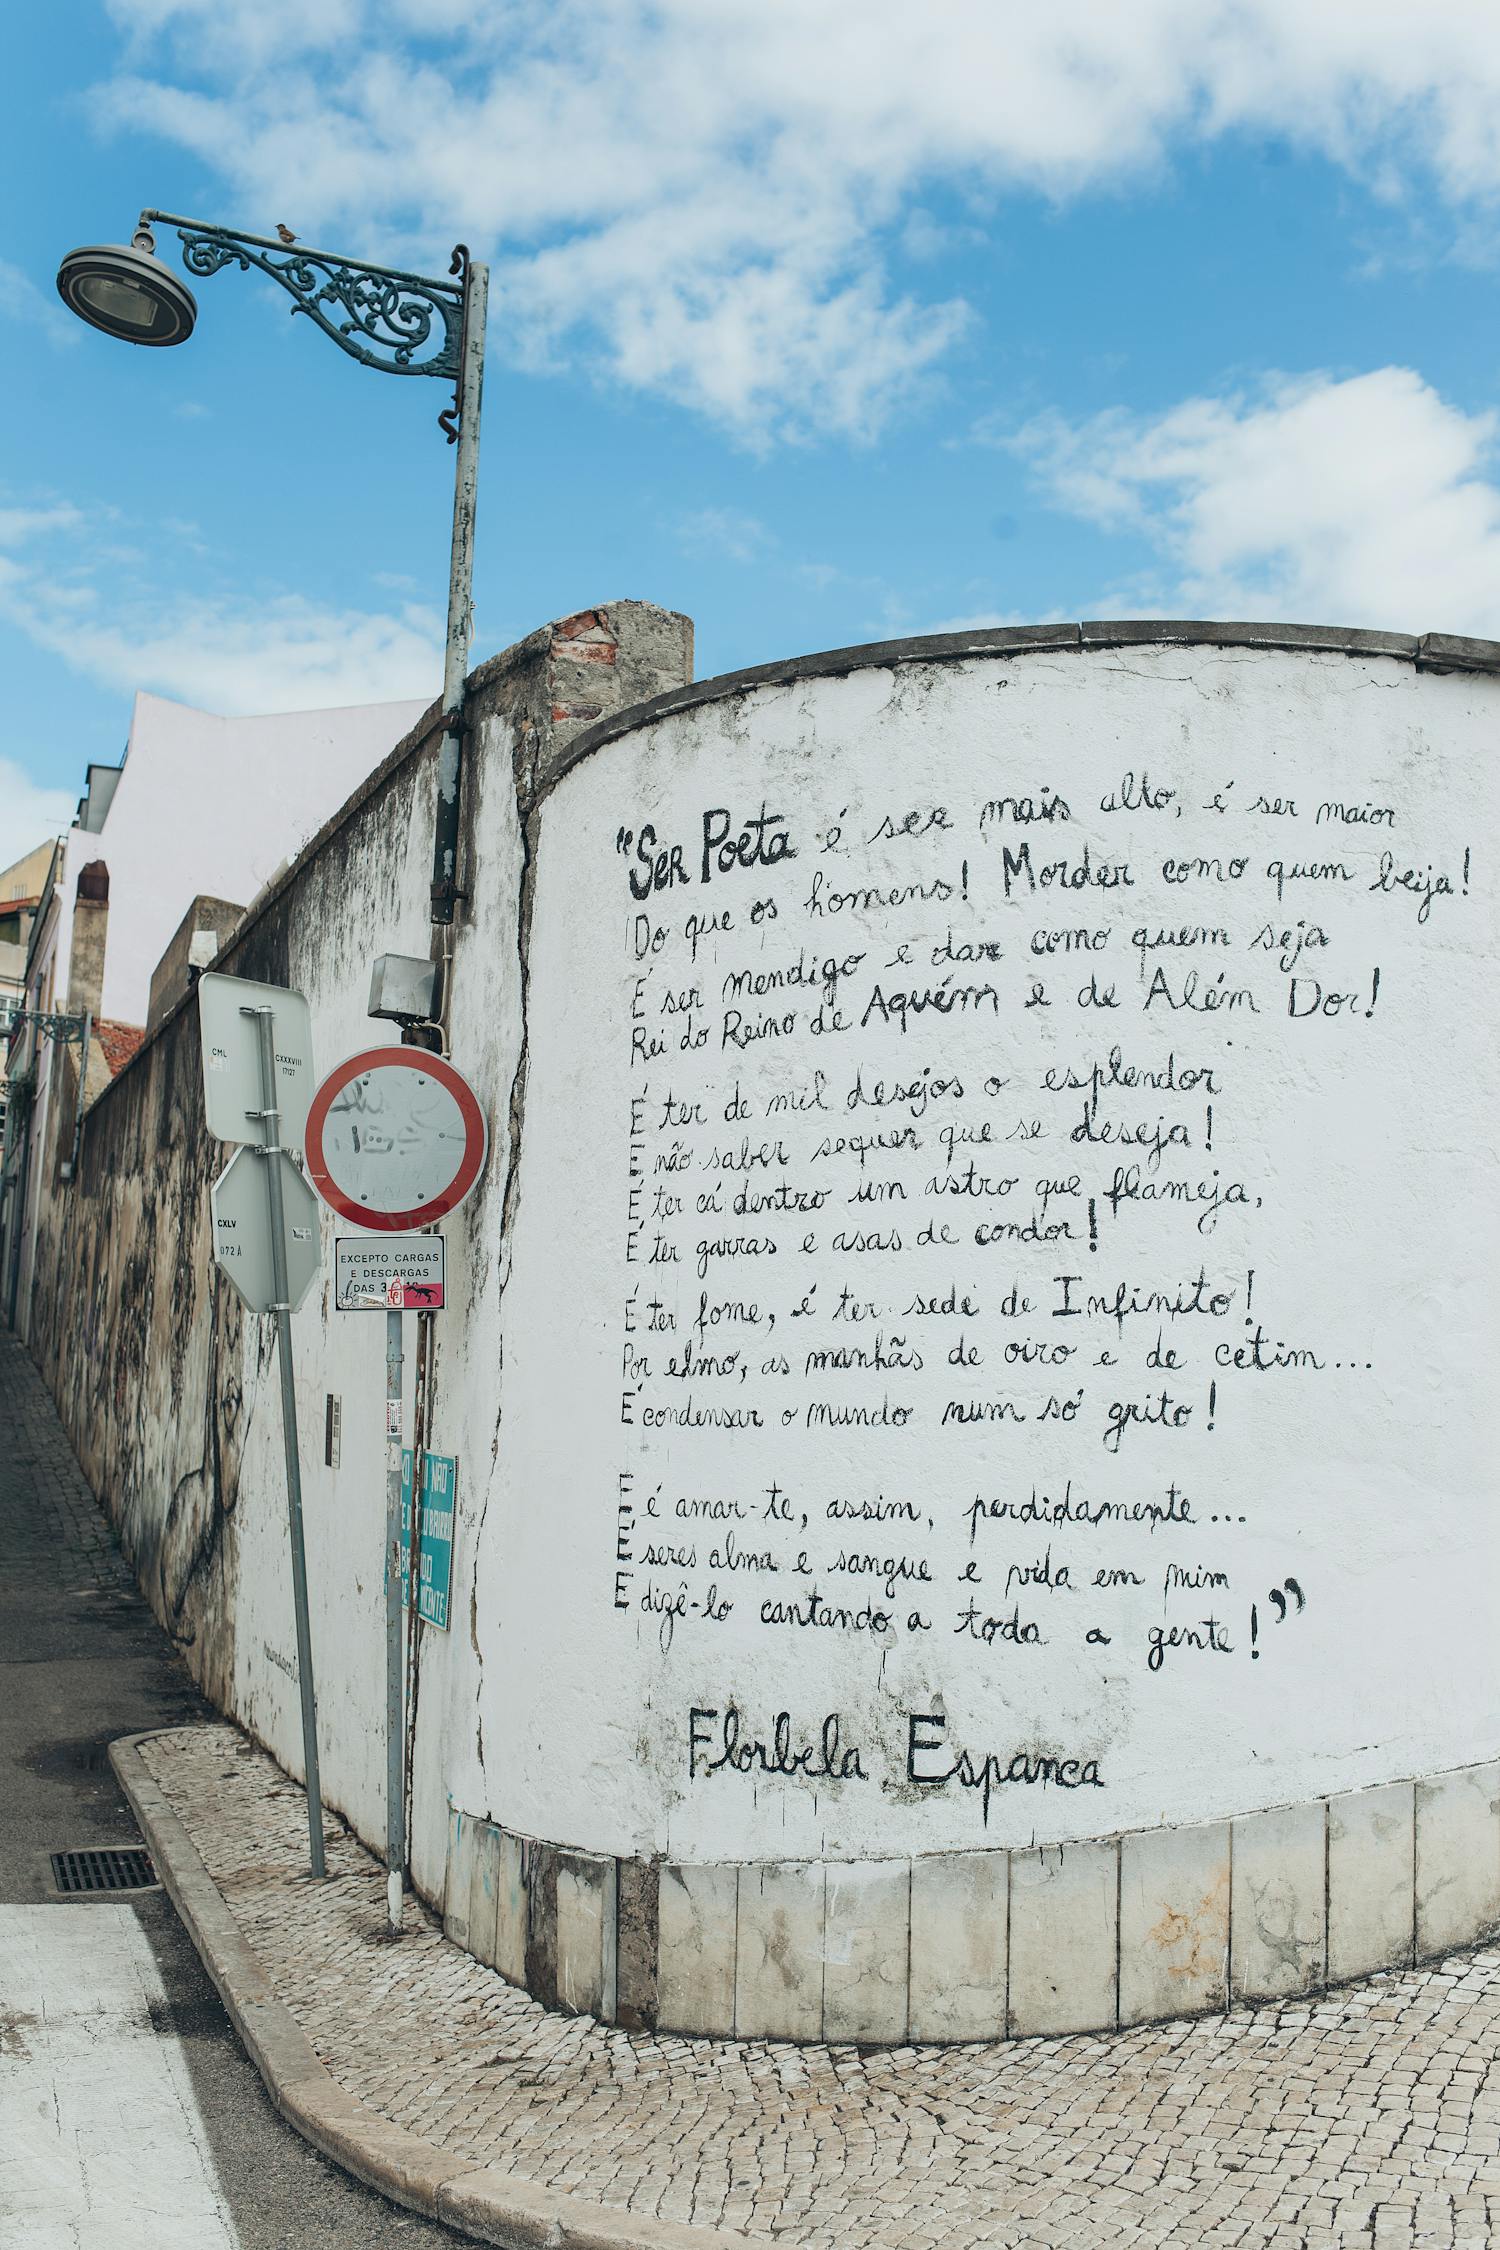 "Ser Poeta é ser mais alto, é ser maior
Do que os homens! Morder como quem beija!
É ser mendigo e dar como quem seja
Rei do Reino de Aquém e de Além Dor!
É ter de mil desejos o esplendor
E não saber sequer que se deseja!
É ter cá dentro um astro que flameja,
É ter garras e asas de condor!
É ter fome, é ter sede de Infinito!
Por elmo, as manhãs de oiro e de cetim...
É condensar o mundo num só grito!
E é amar-te, assim, perdidamente...
É seres alma e sangue e vida em mim
E dizê-lo cantando a toda a gente!"
Florbela Espanca
CML
CXXXVIII
17127
CXLV
072A
EXCEPTO CARGAS
E DESCARGAS
DAS 3
NÃO